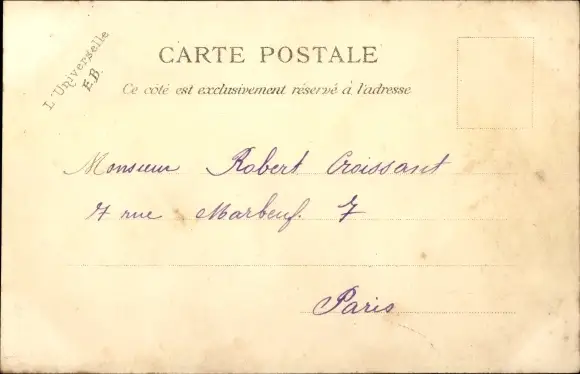 L'Universelle
E.B.
CARTE POSTALE
Ce côté est exclusivement réservé à l'adresse
Monsieur Robert Croissant
7 rue Marbeuf. 7
Paris